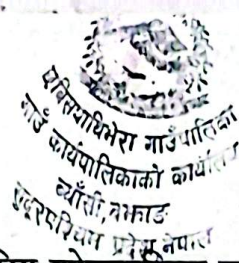 छबिसपाथिभेरा गाउँपालिका
गाउँ कार्यपालिकाको कार्यालय
ब्याँसी, बझाङ
सुदूरपश्चिम प्रदेश, नेपाल